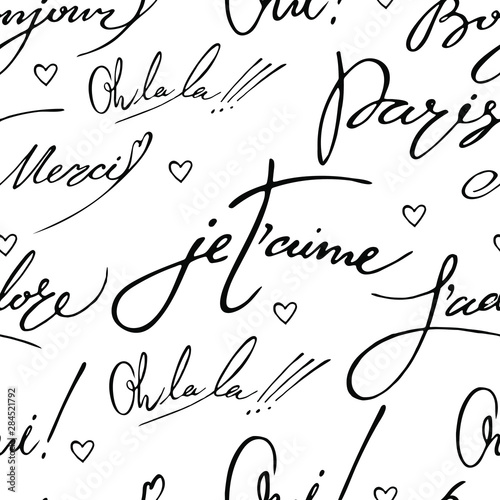 onjour Oui! Bo
Oh la la!!! Paris
Merci
je t'aime
dore J'ad
Oh la la!!!
ui! Oui! O
Adobe Stock | #284521792